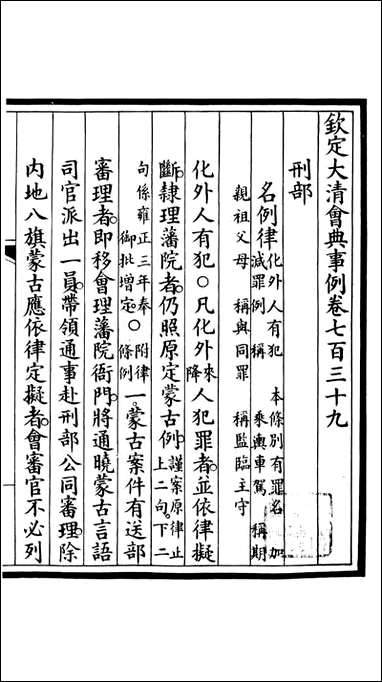 欽定大清會典事例卷七百三十九
刑部
名例律 化外人有犯 本條別有罪名 加
減罪例 稱乘輿車駕 稱期
親祖父母 稱與同罪 稱監臨主守
化外人有犯○凡化外來降人犯罪者並依律擬
斷隸理藩院者仍照原定蒙古例謹案原律止上二句下二
句係雍正三年奉御批增定○附律條例一蒙古案件有送部
審理者即移會理藩院衙門將通曉蒙古言語
司官派出一員帶領通事赴刑部公同審理除
內地八旗蒙古應依律定擬者會審官不必列